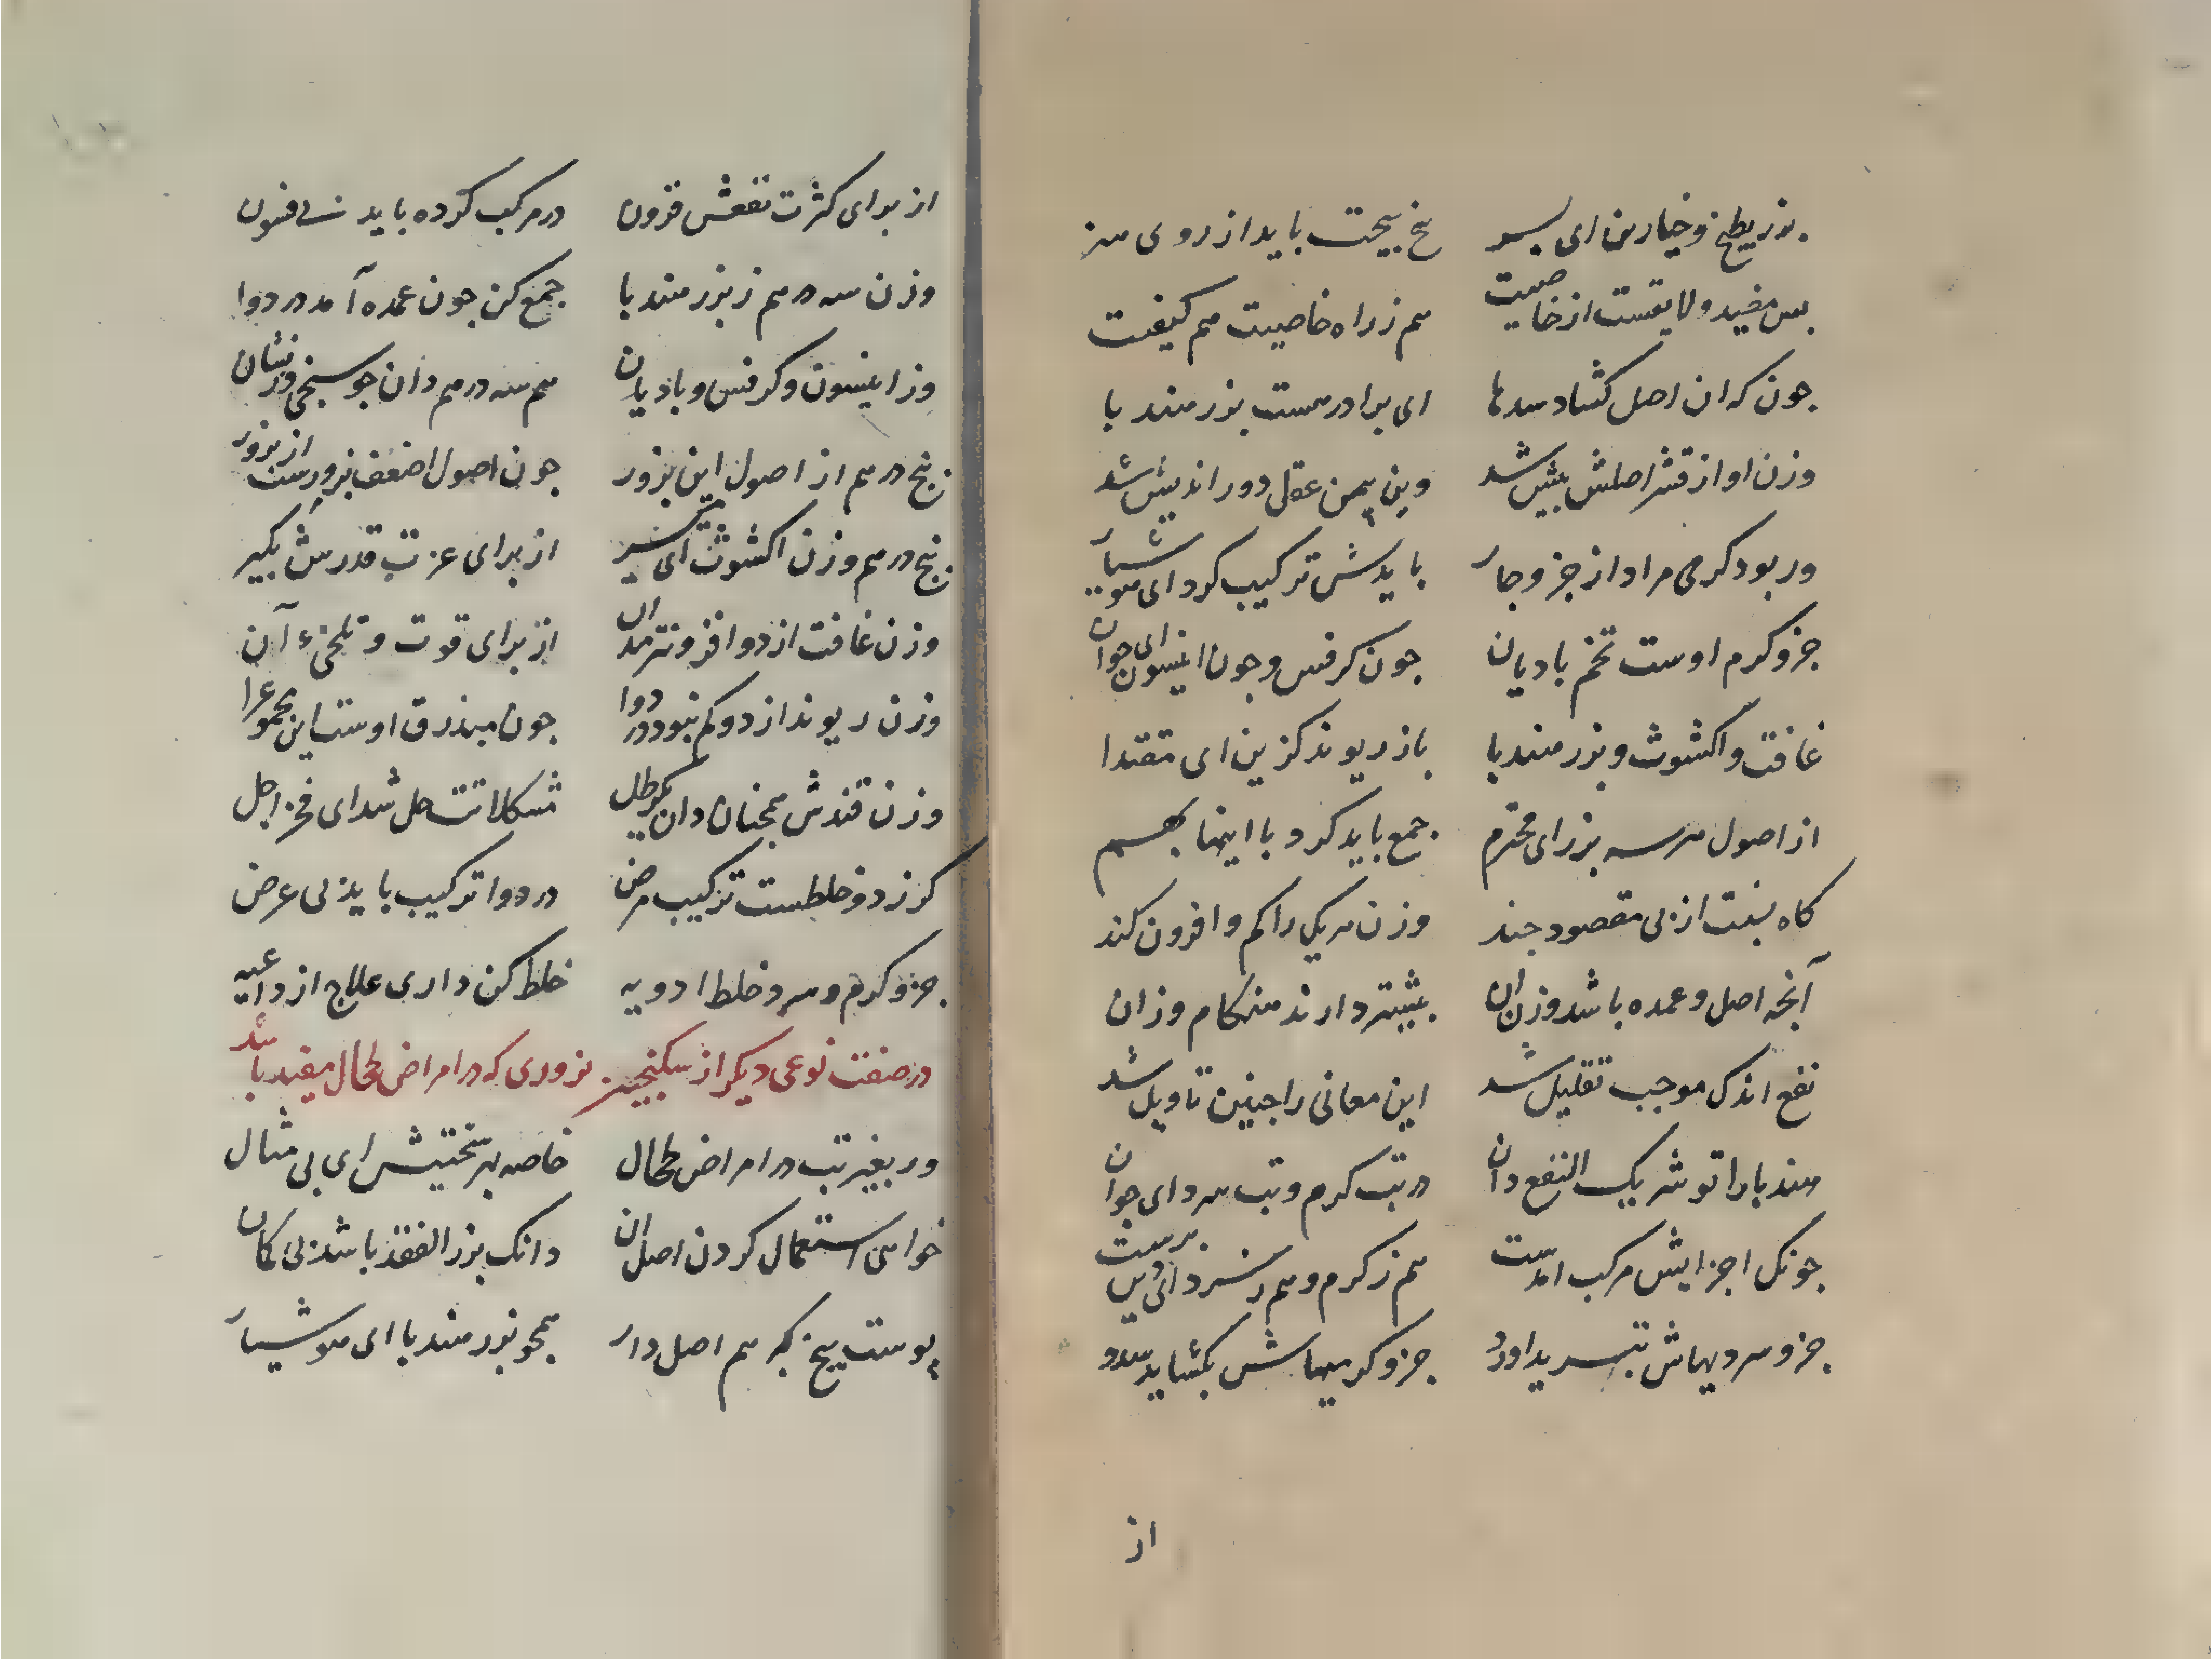 بزر بطیخ و خیارین ای پسر    بیخ بیختت باید از روی هنر
بس مفید و لایقست از خاصیت    هم ز راه خاصیت هم کیفیت
جون که ان اصل کشاد سدها    ای برادر هست بزر هندبا
وزن او از قشر اصلش بیش شد    وین بیمن عقل دور اندیش شد
ور بود کرمی مراد از جزو حار    بایدش ترکیب کرد ای هوشیار
جزو کرم اوست تخم بادیان    جون کرفس و جون انیسون ای جوان
غافت و اکشوث و بزر هندبا    باز ریوند کزین ای مقتدا
از اصول هر سه بزر ای محترم    جمع باید کرد با اینها بهم
کاه نسبت از پی مقصود جند    وزن هر یکی را کم و افزون کند
آنچه اصل و عمده باشد وزن ان    بیشتر دارند هنکام وزان
نفع اندک موجب تقلیل شد    این معانی را جنین تاویل شد
هندبا را تو شریک النفع دان    در تب کرم و تب سرد ای جوان
جونک اجزایش مرکب امدست    هم ز کرم و هم ز سرد ای دین پرست
جزو سردیهاش تبرید اورد    جزو کرمیهاش بکشاید سدد
از
از برای کثرت نفعش فزون    در مرکب کرده باید فنون
وزن سه درهم ز بزر هندبا    جمع کن جون عمده آمد در دوا
وز انیسون و کرفس و بادیان    هم سه درهم دان جو سنجی وزنشان
پنج درهم از اصول این بزور    جون اصول اضعف برورست از بزور
پنج درهم وزن اکشوث ای    از برای عزت قدرش بکیر
وزن غافت از دو افزونتر مدان    از برای قوت و تلخیء آن
وزن ریوند از دو کم نبود در دوا    جون مبذرق اوست این مجموع را
وزن قندش همجنان دان یکرطل    مشکلاتت حل شد ای فخر اجل
کر ز دو خلطست ترکیب مرض    در دوا ترکیب باید بی عرض
جزو کرم و سرد خلط ادویه    خلط کن داری علاج از داعیه
در صفت نوعی دیکر از سکنجبین بزوری که در امراض طحال مفید باشد
ور بغیر تب در امراض طحال    خاصه بر سختیش ای بی مثال
خواهی استعمال کردن اصل ان    دانک بزر الفقد باشد بی کمان
پوست بیخ کبر هم اصل دار    همجو بزر هندبا ای هوشیار